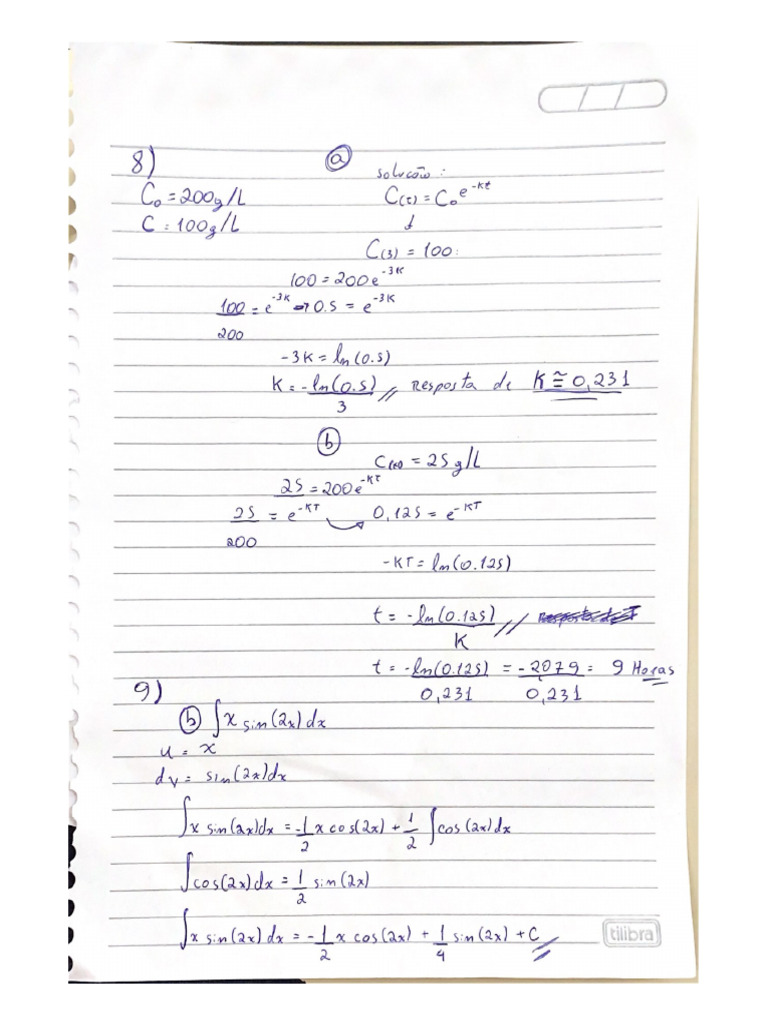 8) ⓐ
solução:
C₀ = 200g/L C(t) = C₀e^-kt
C = 100g/L ↓
C(3) = 100:
100 = 200e^-3K
100/200 = e^-3K → 0.5 = e^-3K
-3K = ln(0.5)
K = -ln(0.5)/3 // Resposta de K ≅ 0,231
ⓑ
C(t) = 25g/L
25 = 200e^-KT
25/200 = e^-KT 0,125 = e^-KT
-KT = ln(0.125)
t = -ln(0.125)/K //
t = -ln(0.125)/0,231 = -2,079/0,231 = 9 Horas
9)
ⓑ ∫x sin(2x)dx
u = x
dv = sin(2x)dx
∫x sin(2x)dx = -1/2 x cos(2x) + 1/2 ∫cos(2x)dx
∫cos(2x)dx = 1/2 sin(2x)
∫x sin(2x)dx = -1/2 x cos(2x) + 1/4 sin(2x) + C //
tilibra